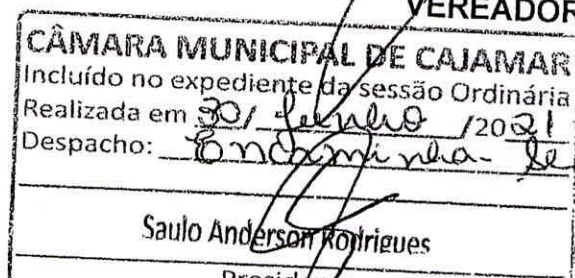 VEREADOR
CÂMARA MUNICIPAL DE CAJAMAR
Incluído no expediente da sessão Ordinária
Realizada em 30/ Junho /2021
Despacho: Encaminha-se
Saulo Anderson Rodrigues
Presid